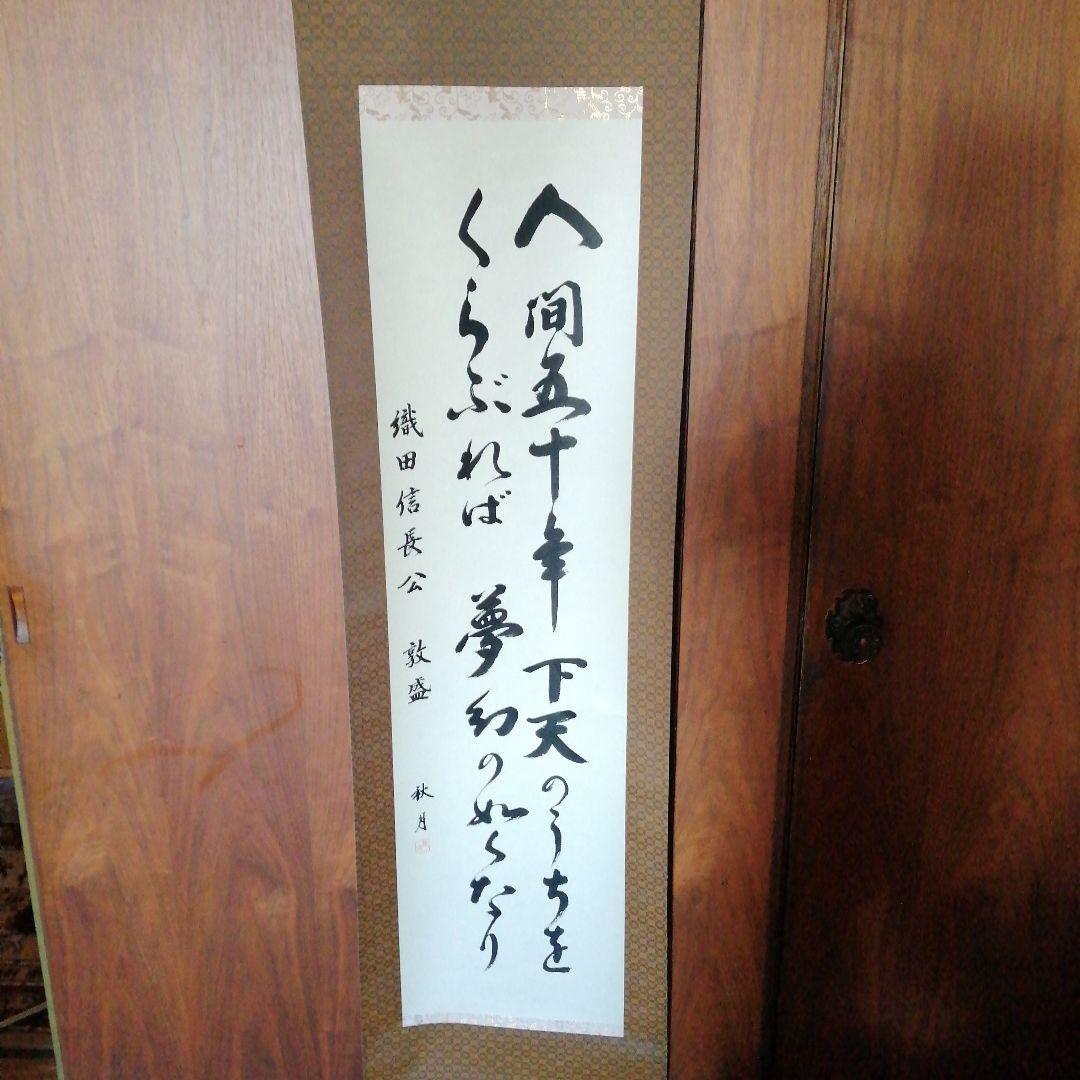 人間五十年 下天のうちを
くらぶれば 夢幻の如くなり
織田信長公 敦盛
秋月